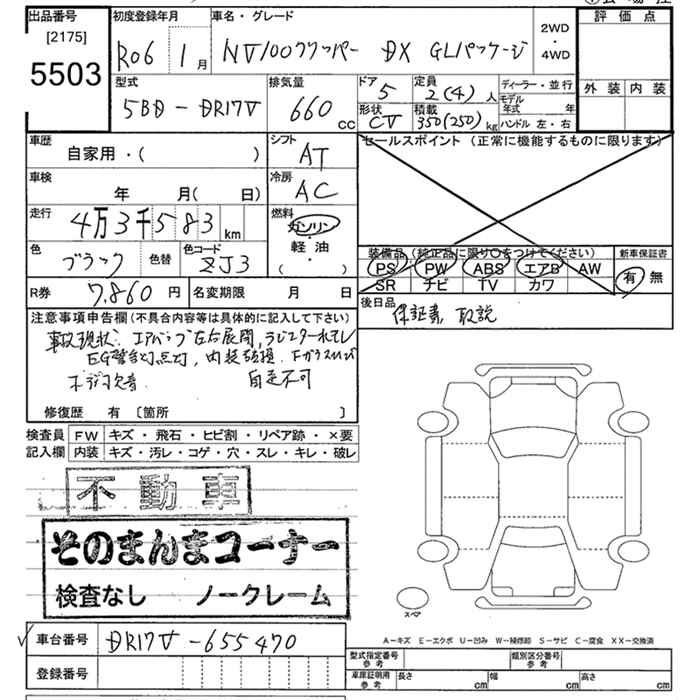 出品番号 初度登録年月 車名・グレード 評価点
[2175]
5503
R06 1月 NV100クリッパー DX GLパッケージ 2WD
4WD
型式 排気量 ドア 定員 ディーラー・並行 外装 内装
5BD-DR17V 660cc 5 2(4)人 モデル年式 年
形状 積載 ハンドル 左・右
CV 350(250)kg
車歴 シフト セールスポイント (正常に機能するものに限ります)
自家用・( ) AT
車検 冷房
年 月(日) AC
走行 燃料
4万3千583km ガソリン
軽・油
( ・ )
色 色替 色コード 装備品(純正品に限り〇をつけてください) 新車保証書
ブラック ZJ3 PS PW ABS エアB AW 有 無
SR ナビ TV カワ
R券 7,860円 名変期限 月 日 後日品
保証書 取説
注意事項申告欄(不具合内容等は具体的に記入して下さい)
事故現状、エアバッグ左右展開、ラジエター水モレ
EG警告灯点灯、内装破損、Fガラスヒビ
自走不可
修復歴 有 〔箇所 〕
検査員 FW キズ・飛石・ヒビ割・リペア跡・×要
記入欄 内装 キズ・汚レ・コゲ・穴・スレ・キレ・破レ
不動車
そのまんまコーナー
検査なし ノークレーム
スペア
A-キズ E-エクボ U-凹み W-補修跡 S-サビ C-腐食 XX-交換済
車台番号 DR17V-655470 型式指定番号 参考 類別区分番号 参考
登録番号 車庫証明用 参考 長さ cm 幅 cm 高さ cm